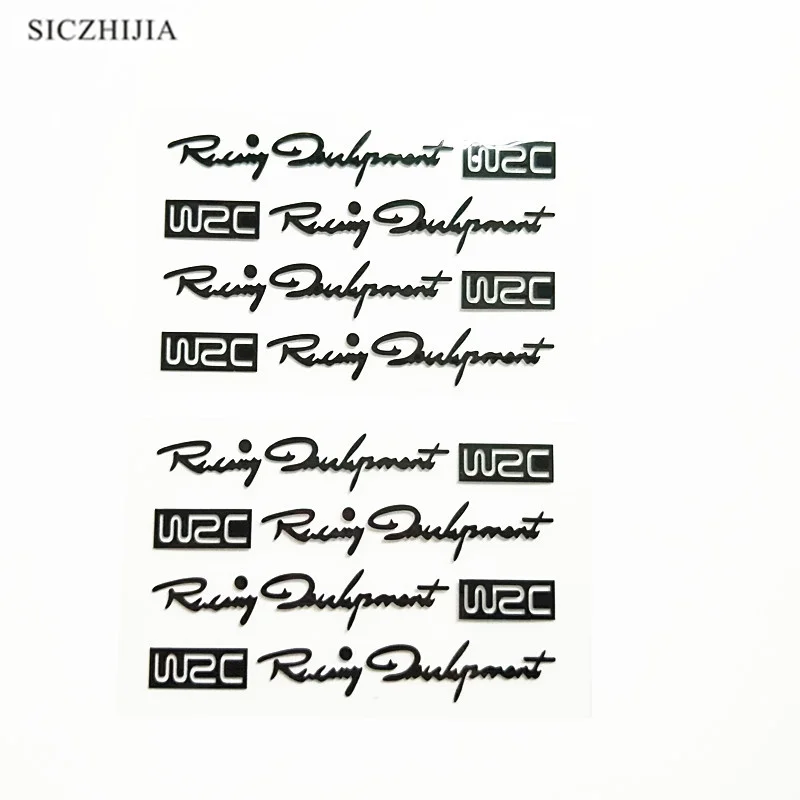 SICZHIJIA
Racing Development WRC
WRC Racing Development
Racing Development WRC
WRC Racing Development
Racing Development WRC
WRC Racing Development
Racing Development WRC
WRC Racing Development